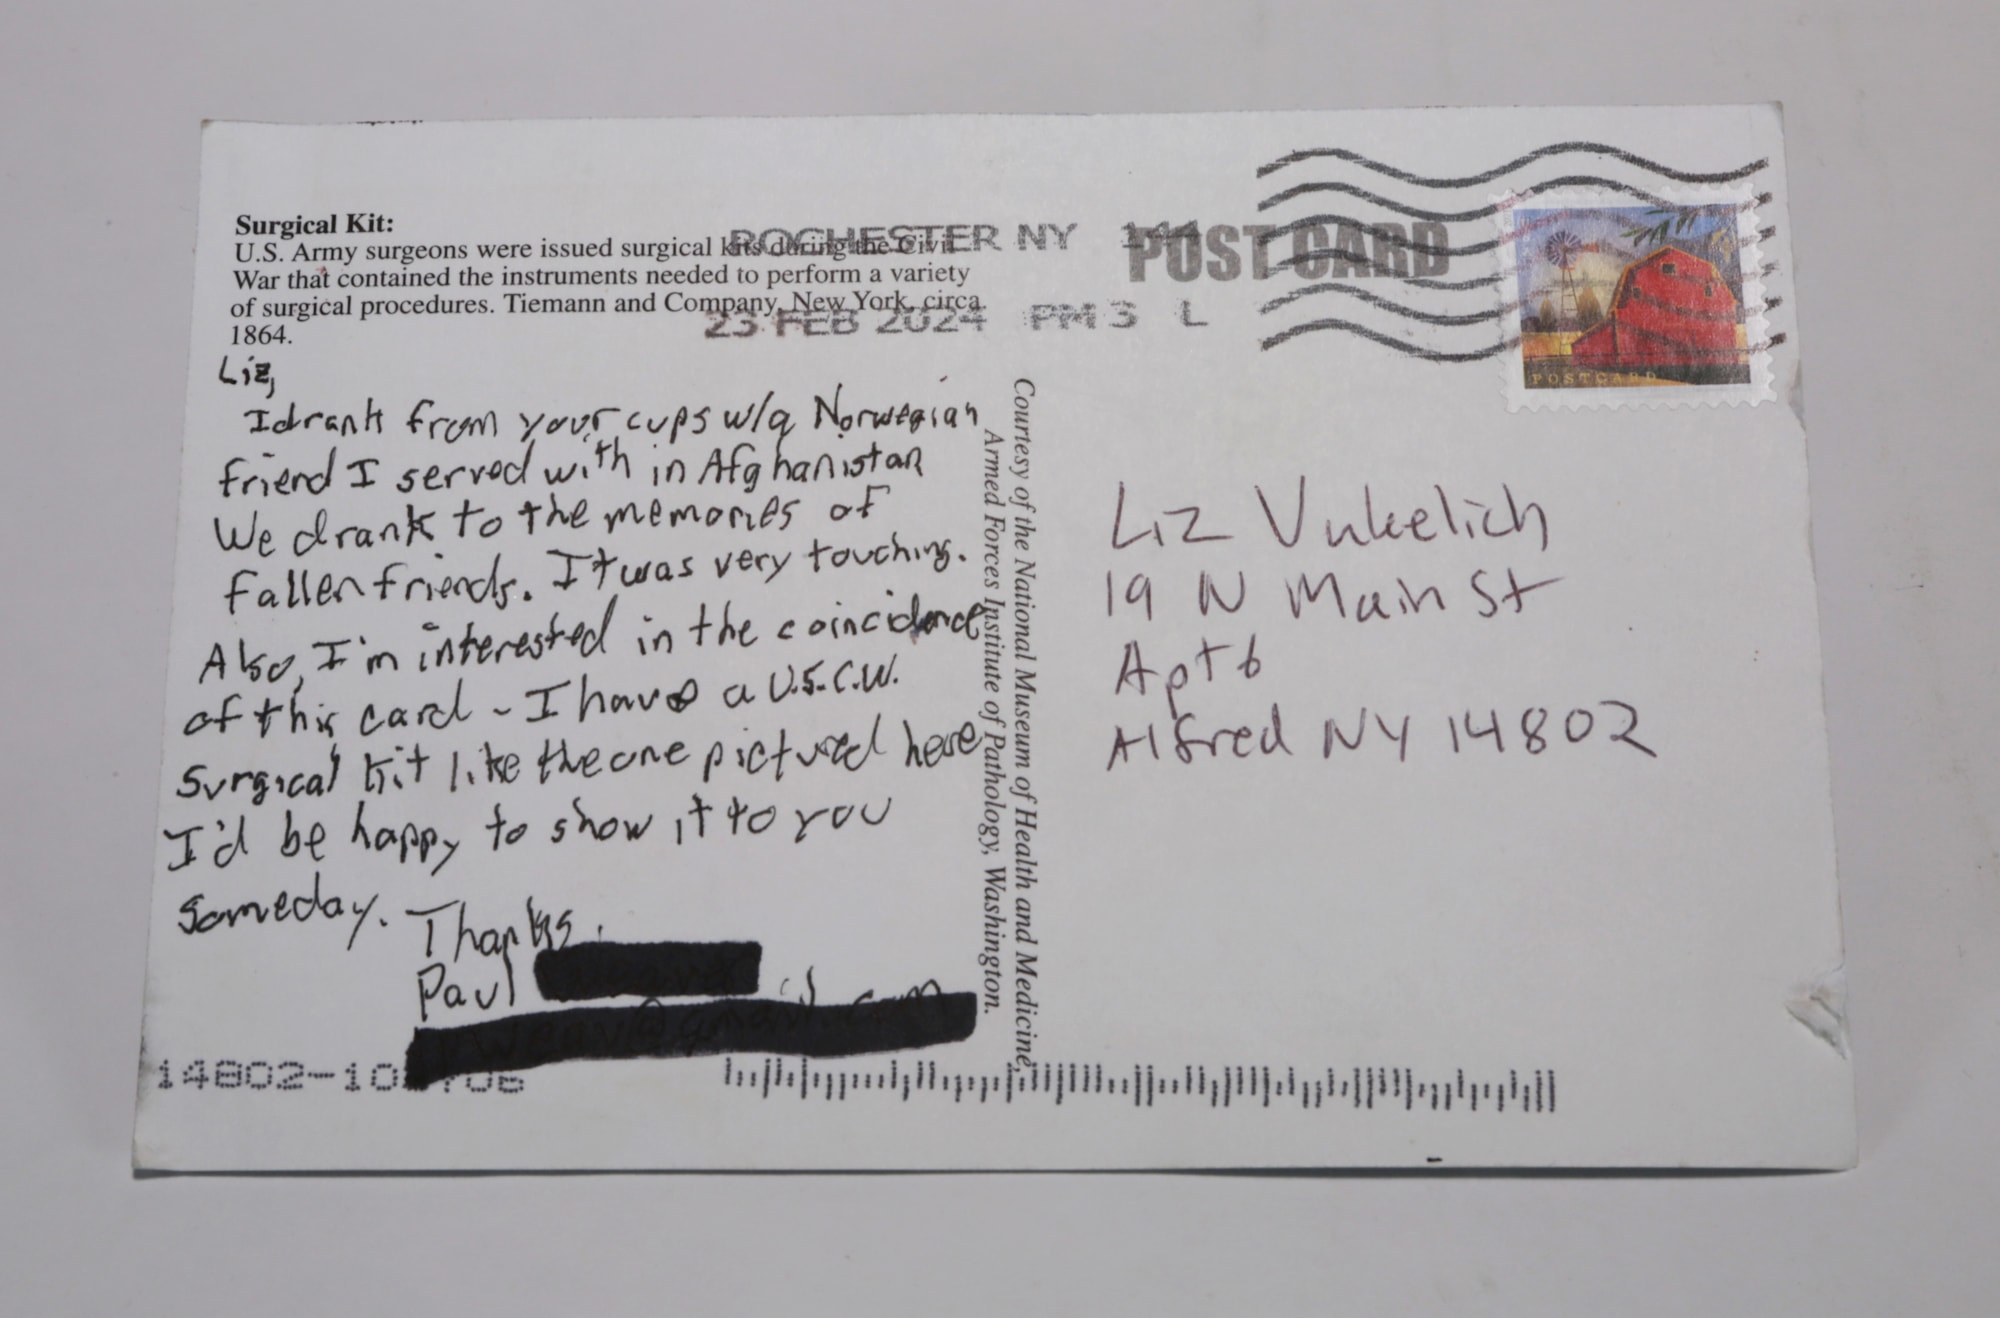 Surgical Kit:
U.S. Army surgeons were issued surgical kits during the Civil
War that contained the instruments needed to perform a variety
of surgical procedures. Tiemann and Company, New York, circa
1864.
ROCHESTER NY 144
23 FEB 2024 PM 3 L
POST CARD
POSTCARD
Liz,
I drank from your cups w/a Norwegian
friend I served with in Afghanistan
We drank to the memories of
fallen friends. It was very touching.
Also, I'm interested in the coincidence
of this card - I have a U.S.C.W.
Surgical kit like the one pictured here
I'd be happy to show it to you
someday. Thanks,
Paul
Courtesy of the National Museum of Health and Medicine,
Armed Forces Institute of Pathology, Washington.
Liz Vukelich
19 N Main St
Apt 6
Alfred NY 14802
14802-10